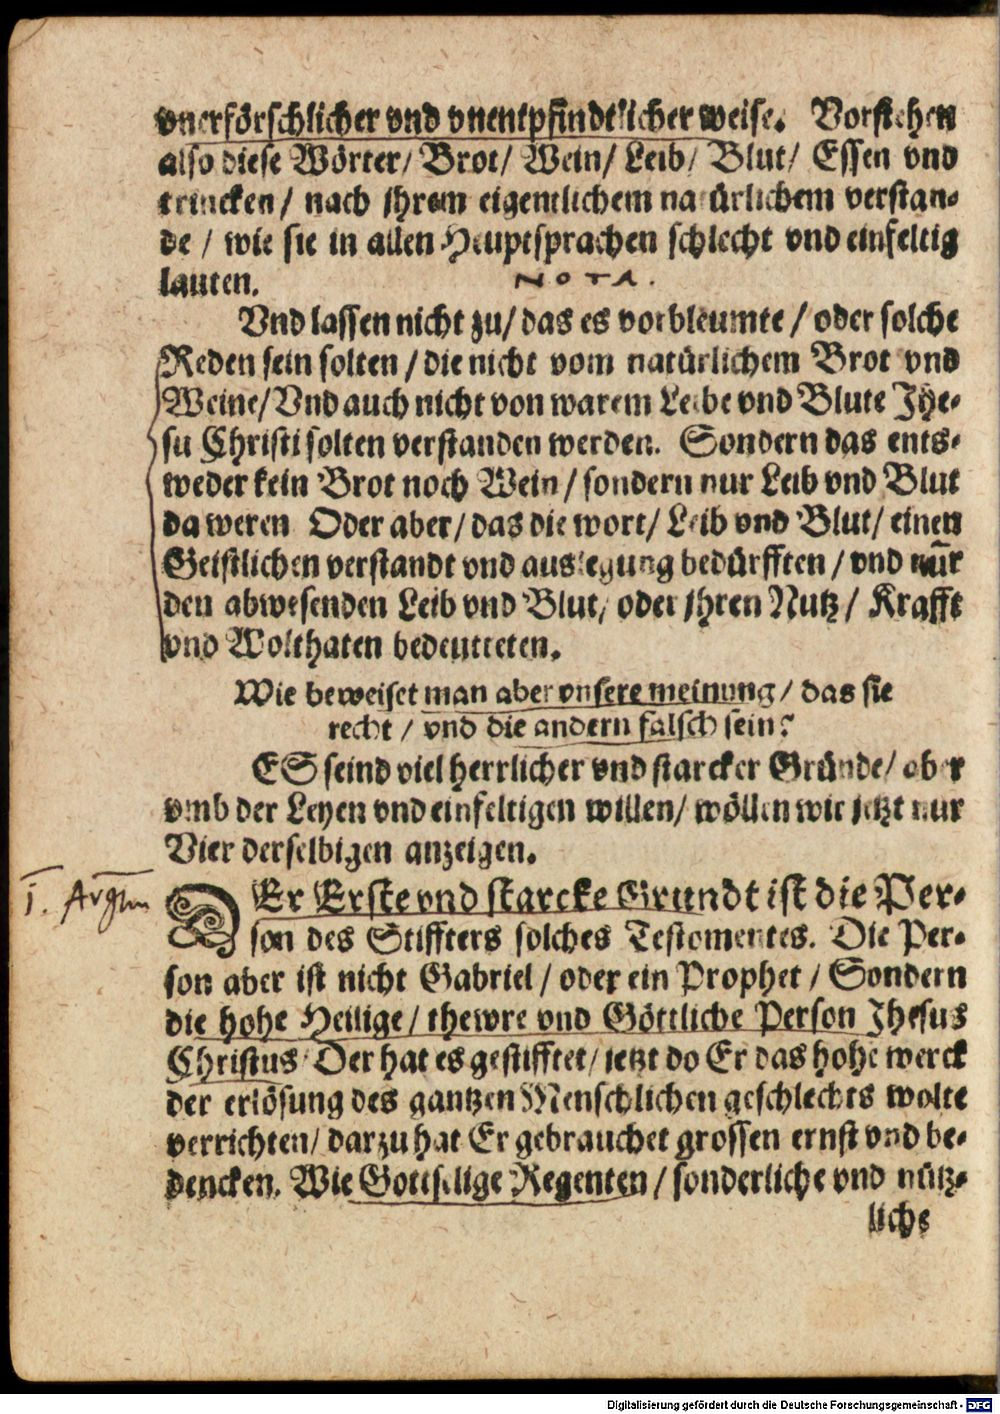 vnerförschlicher vnd vnentpfindtlicher weise. Vorstehen
also diese Wörter/ Brot/ Wein/ Leib/ Blut/ Essen vnd
trincken/ nach jhrem eigentlichem natürlichem verstan-
de / wie sie in allen Heuptsprachen schlecht vnd einfeltig
lauten.
NOTA.
Vnd lassen nicht zu/ das es vorbleumte / oder solche
Reden sein solten / die nicht vom natürlichem Brot vnd
Weine/ Vnd auch nicht von warem Leibe vnd Blute Jhe-
su Christi solten verstanden werden. Sondern das ents-
weder kein Brot noch Wein / sondern nur Leib vnd Blut
da weren Oder aber/ das die wort/ Leib vnd Blut/ einen
Geistlichen verstandt vnd auslegung bedürfften / vnd nur
den abwesenden Leib vnd Blut/ oder jhren Nutz/ Krafft
vnd Wolthaten bedeutteten.
Wie beweiset man aber vnsere meinung / das sie
recht / vnd die andern falsch sein?
ES seind viel herrlicher vnd starcker Gründe/ aber
vmb der Leyen vnd einfeltigen willen/ wöllen wir jetzt nur
Vier derselbigen anzeigen.
1. Argum
DEr Erste vnd starcke Grundt ist die Per-
son des Stiffters solches Testomentes. Die Per-
son aber ist nicht Gabriel / oder ein Prophet / Sondern
die hohe Heilige / thewre vnd Göttliche Person Jhesus
Christus Der hat es gestifftet/ jetzt do Er das hohe werck
der erlösung des gantzen Menschlichen geschlechts wolte
verrichten/ darzu hat Er gebrauchet grossen ernst vnd be-
dencken. Wie Gottselige Regenten / sonderliche vnd nütz-
liche
Digitalisierung gefördert durch die Deutsche Forschungsgemeinschaft - DFG